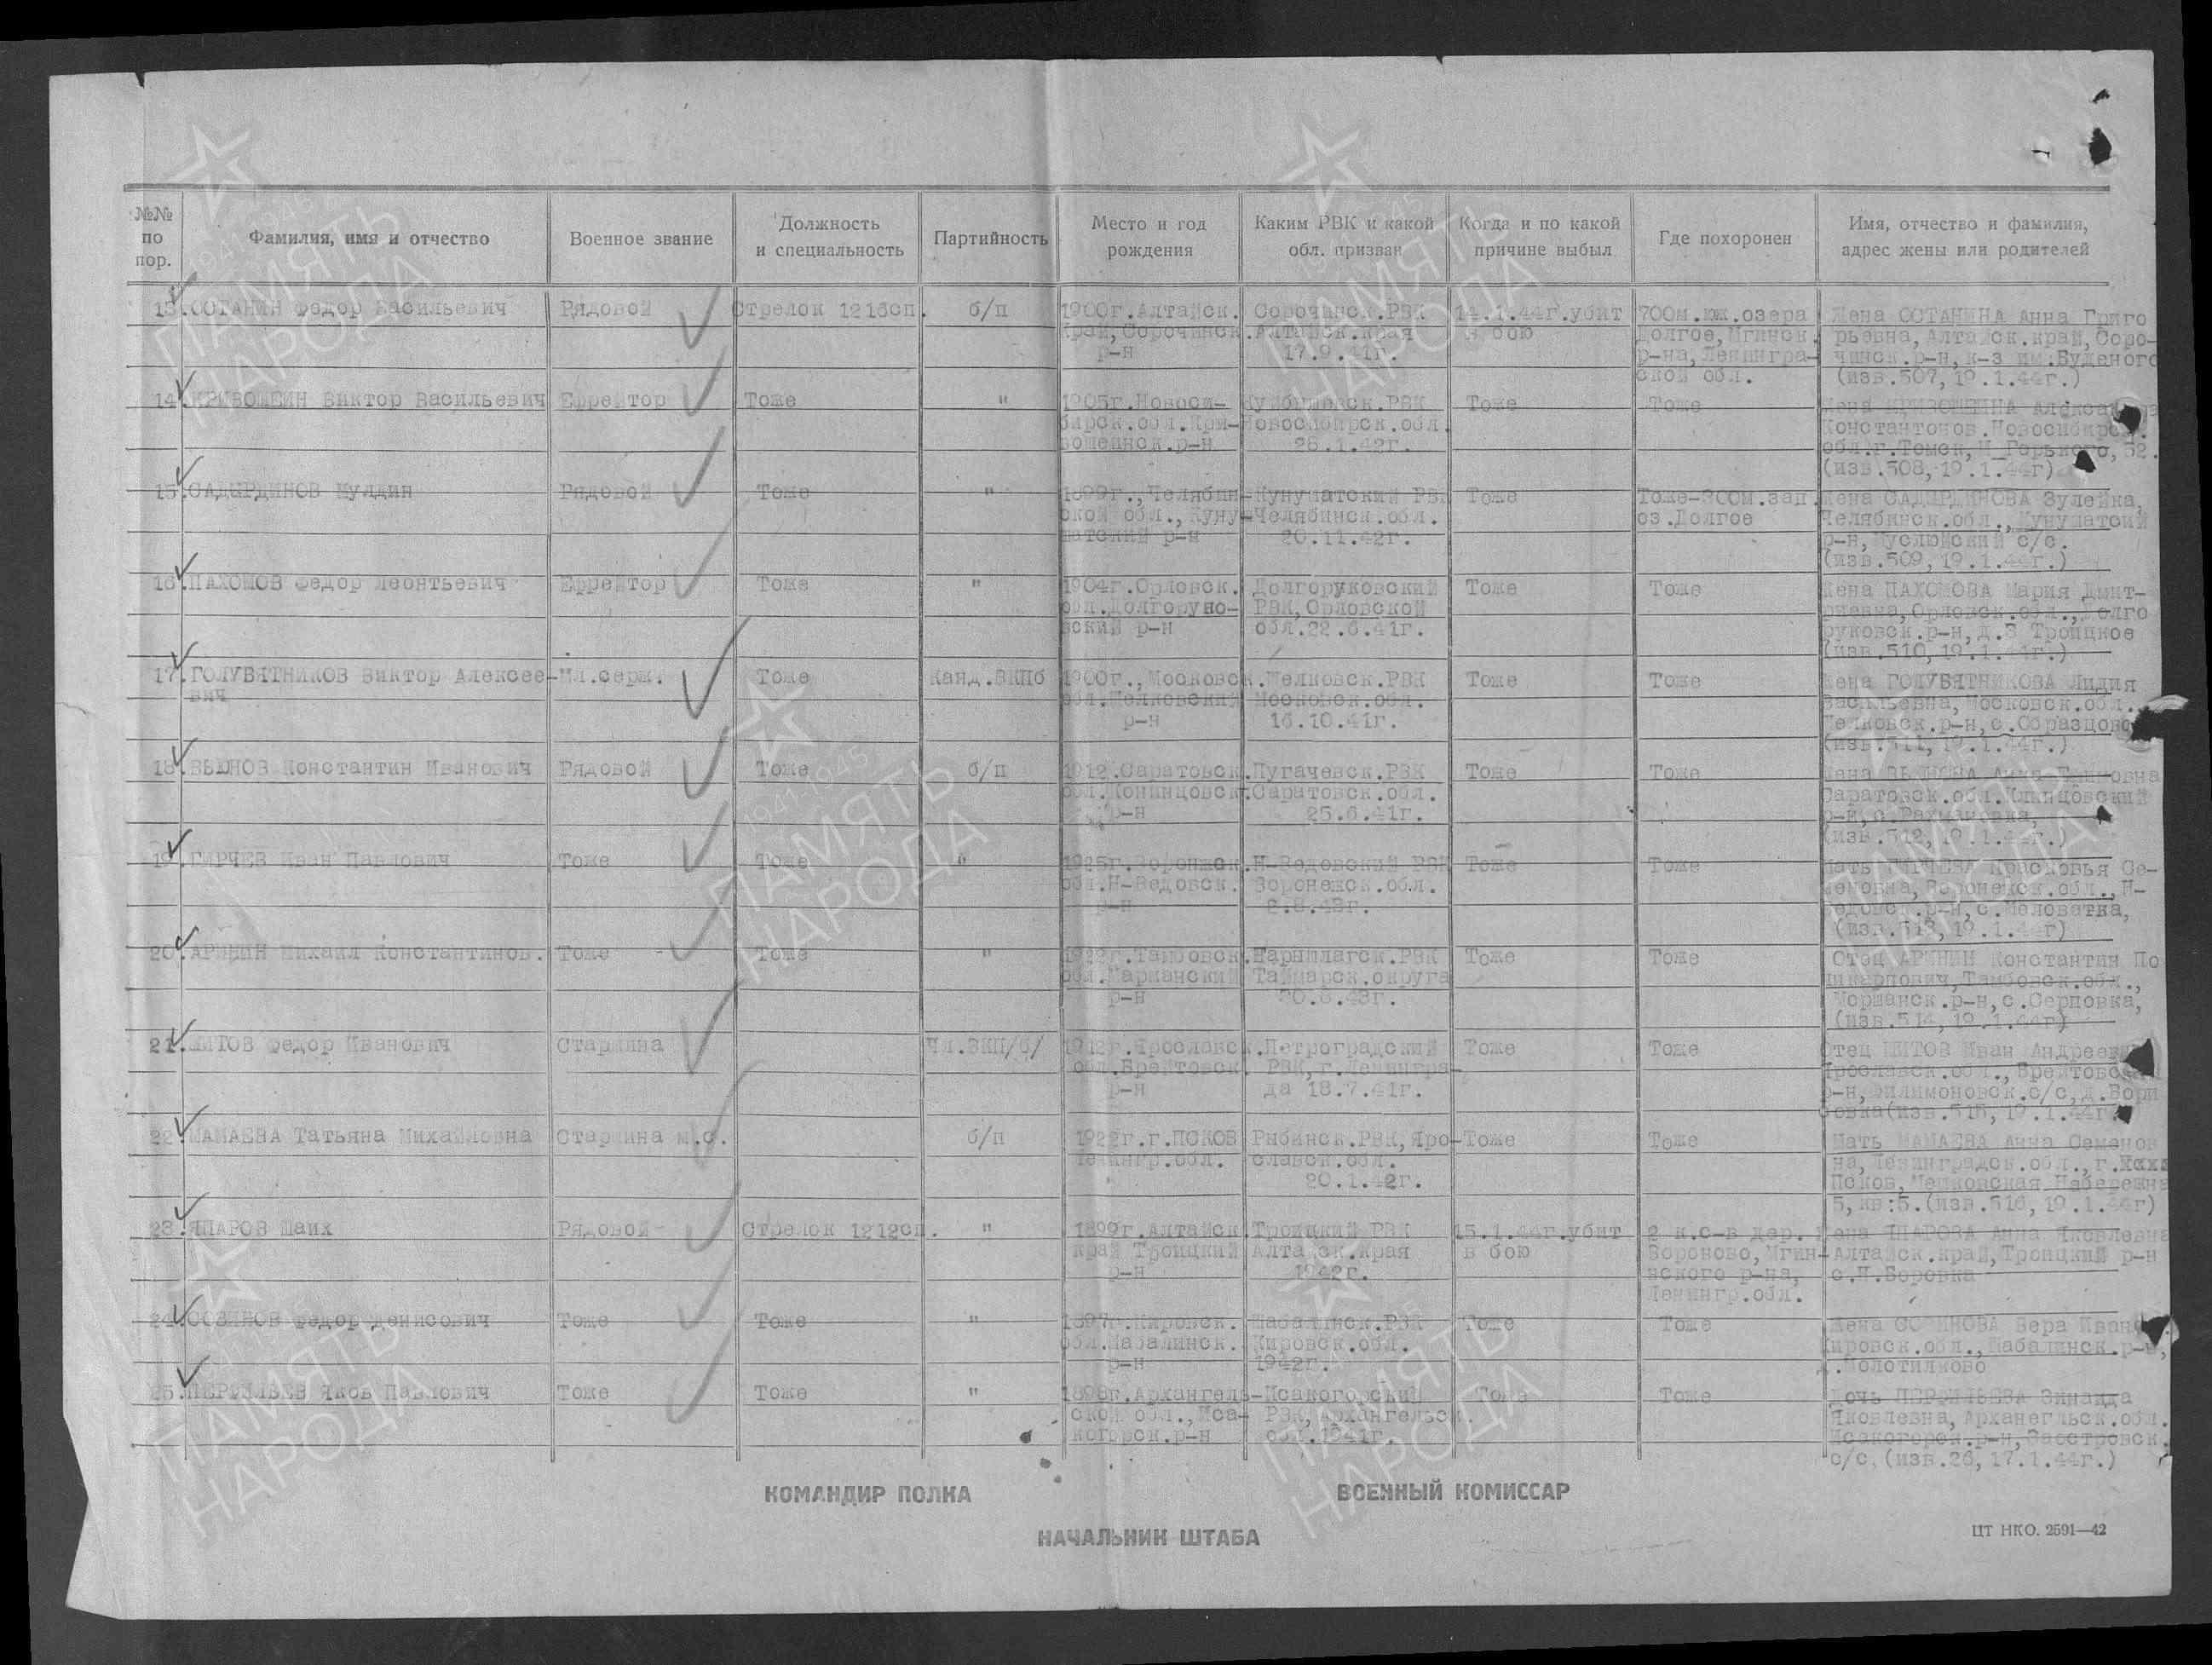 №№ по пор.
Фамилия, имя и отчество
Военное звание
Должность и специальность
Партийность
Место и год рождения
Каким РВК и какой обл. призван
Когда и по какой причине выбыл
Где похоронен
Имя, отчество и фамилия, адрес жены или родителей
13. СОТАНИН Федор Васильевич
Рядовой
Стрелок 1216сп.
б/п
1900г.Алтайск.
край, Сорочинск.
р-н
Сорочинск.РВК
Алтайск.края
17.9.41г.
14.1.44г.убит
в бою
700м.юж.озера
Долгое, Мгинск.
р-на, Ленингра-
ской обл.
Жена СОТАНИНА Анна Григо
рьевна, Алтайск.край, Соро-
чинск.р-н, к-з им.Буденого
(изв.507, 19.1.44г.)
14. КРИВОШЕИН Виктор Васильевич
Ефрейтор
Тоже
"
1905г.Новоси-
бирск.обл.Кри-
вошеинск.р-н
Куйбышевск.РВК
Новосибирск.обл.
26.1.42г.
Тоже
Тоже
Жена КРИВОШЕИНА
Константинов.Новосибирск.
обл.г.Томск, М_Горького, 52.
(изв.508, 19.1.44г)
15. САДЫРДИНОВ Мулдин
Рядовой
Тоже
"
1899г., Челябин-
ской обл., Куну-
шатский р-н
Кунушатский РВК
Челябинск.обл.
20.11.42г.
Тоже
Тоже-300м.зап.
оз.Долгое
Жена САДЫРДИНОВА Зулейка,
Челябинск.обл., Кунушатский
р-н, Муслюмский с/с.
(изв.509, 19.1.44г.)
16. ПАХОМОВ Федор Леонтьевич
Ефрейтор
Тоже
"
1904г.Орловск.
обл.Долгоруко-
вский р-н
Долгоруковский
РВК, Орловской
обл.22.6.41г.
Тоже
Тоже
Жена ПАХОМОВА Мария Дмит-
риевна, Орловск.обл., Долго
руковск.р-н, д.З Троицкое
(изв.510, 19.1.44г.)
17. ГОЛУБЯТНИКОВ Виктор Алексее-
вич
Мл.серж.
Тоже
Канд.ВКПб
1900г., Московск.
обл.Щелковский
р-н
Щелковск.РВК
Московск.обл.
16.10.41г.
Тоже
Тоже
Жена ГОЛУБЯТНИКОВА Лидия
Васильевна, Московск.обл.
Щелковск.р-н, с.Образцово
(изв.511, 19.1.44г.)
18. ВЬЮНОВ Константин Иванович
Рядовой
Тоже
б/п
1912.Саратовск.
р-н
Пугачевск.РВК
Саратовск.обл.
25.6.41г.
Тоже
Тоже
Жена ВЬЮНОВА Анна
Саратовск.обл.
р-н, с.Рахмановка,
(изв.512, 19.1.44г.)
19. ГИРЧЕВ Иван Павлович
Тоже
Тоже
"
1925г.Воронежск.
обл.Н-Ведовск.
р-н
Н-Ведовский РВК
Воронежск.обл.
2.8.43г.
Тоже
Тоже
Мать ГИРЧЕВА Прасковья Се-
меновна, Воронежск.обл., Н-
Ведовск.р-н, с.Меловатка,
(изв.513, 19.1.44г)
20. АРИНИН Михаил Константинов.
Тоже
Тоже
"
1922г.Тамбовск.
обл.Маршанский
р-н
Нарильлагск.РВК
Таймарск.округа
20.8.43г.
Тоже
Тоже
Отец АРИНИН Константин По
ликарпович, Тамбовск.обл.,
Моршанск.р-н, с.Серповка,
(изв.514, 19.1.44г)
21. ШИТОВ Федор Иванович
Старшина
Чл.ВКП/б/
1912г.Ярославск.
обл.Брейтовск.
р-н
Петроградский
РВК, г.Ленингра-
да 18.7.41г.
Тоже
Тоже
Отец ШИТОВ Иван Андреевич
Ярославск.обл., Брейтовский
р-н, Филимоновск.с/с, д.Бори
совка(изв.515, 19.1.44г)
22. МАМАЕВА Татьяна Михайловна
Старшина м.с.
б/п
1922г.г.ПСКОВ
Ленингр.обл.
Рибинск.РВК, Яро-
славск.обл.
20.1.42г.
Тоже
Тоже
Мать МАМАЕВА Анна Семенов
на, Ленинградск.обл., г.
Псков, Набережная
5, кв:5.(изв.516, 19.1.44г)
23. ЯПАРОВ Шаих
Рядовой
Стрелок 1212сп.
"
1899г.Алтайск
край Троицкий
р-н
Троицкий РВК
Алтайск.края
1942г.
15.1.44г.убит
в бою
2 к.с-в дер.
Вороново, Мгин-
ского р-на,
Ленингр.обл.
Жена ЯПАРОВА Анна Яковлевна
Алтайск.край, Троицкий р-н
с.Н.Боровка
24. СОЗИНОВ Федор Денисович
Тоже
Тоже
"
1897г.Кировск.
обл.Шабалинск.
р-н
Шабалинск.РВК
Кировск.обл.
1942г.
Тоже
Тоже
Жена СОЗИНОВА Вера Иван
Кировск.обл., Шабалинск.р-н,
д.Молотилково
25. ПЕРФИЛЬЕВ Яков Павлович
Тоже
Тоже
"
1898г.Архангель-
ской обл., Иса-
когорск.р-н
Исакогорский
РВК, Архангельск.
обл.1941г.
Тоже
Тоже
Дочь ПЕРФИЛЬЕВА Зинаида
Яковлевна, Арханегльск.обл.
Исакогорск.р-н, Заостровск.
с/с, (изв.26, 17.1.44г.)
КОМАНДИР ПОЛКА
ВОЕННЫЙ КОМИССАР
НАЧАЛЬНИК ШТАБА
ЦТ НКО. 2591—42
1941-1945
ПАМЯТЬ
НАРОДА